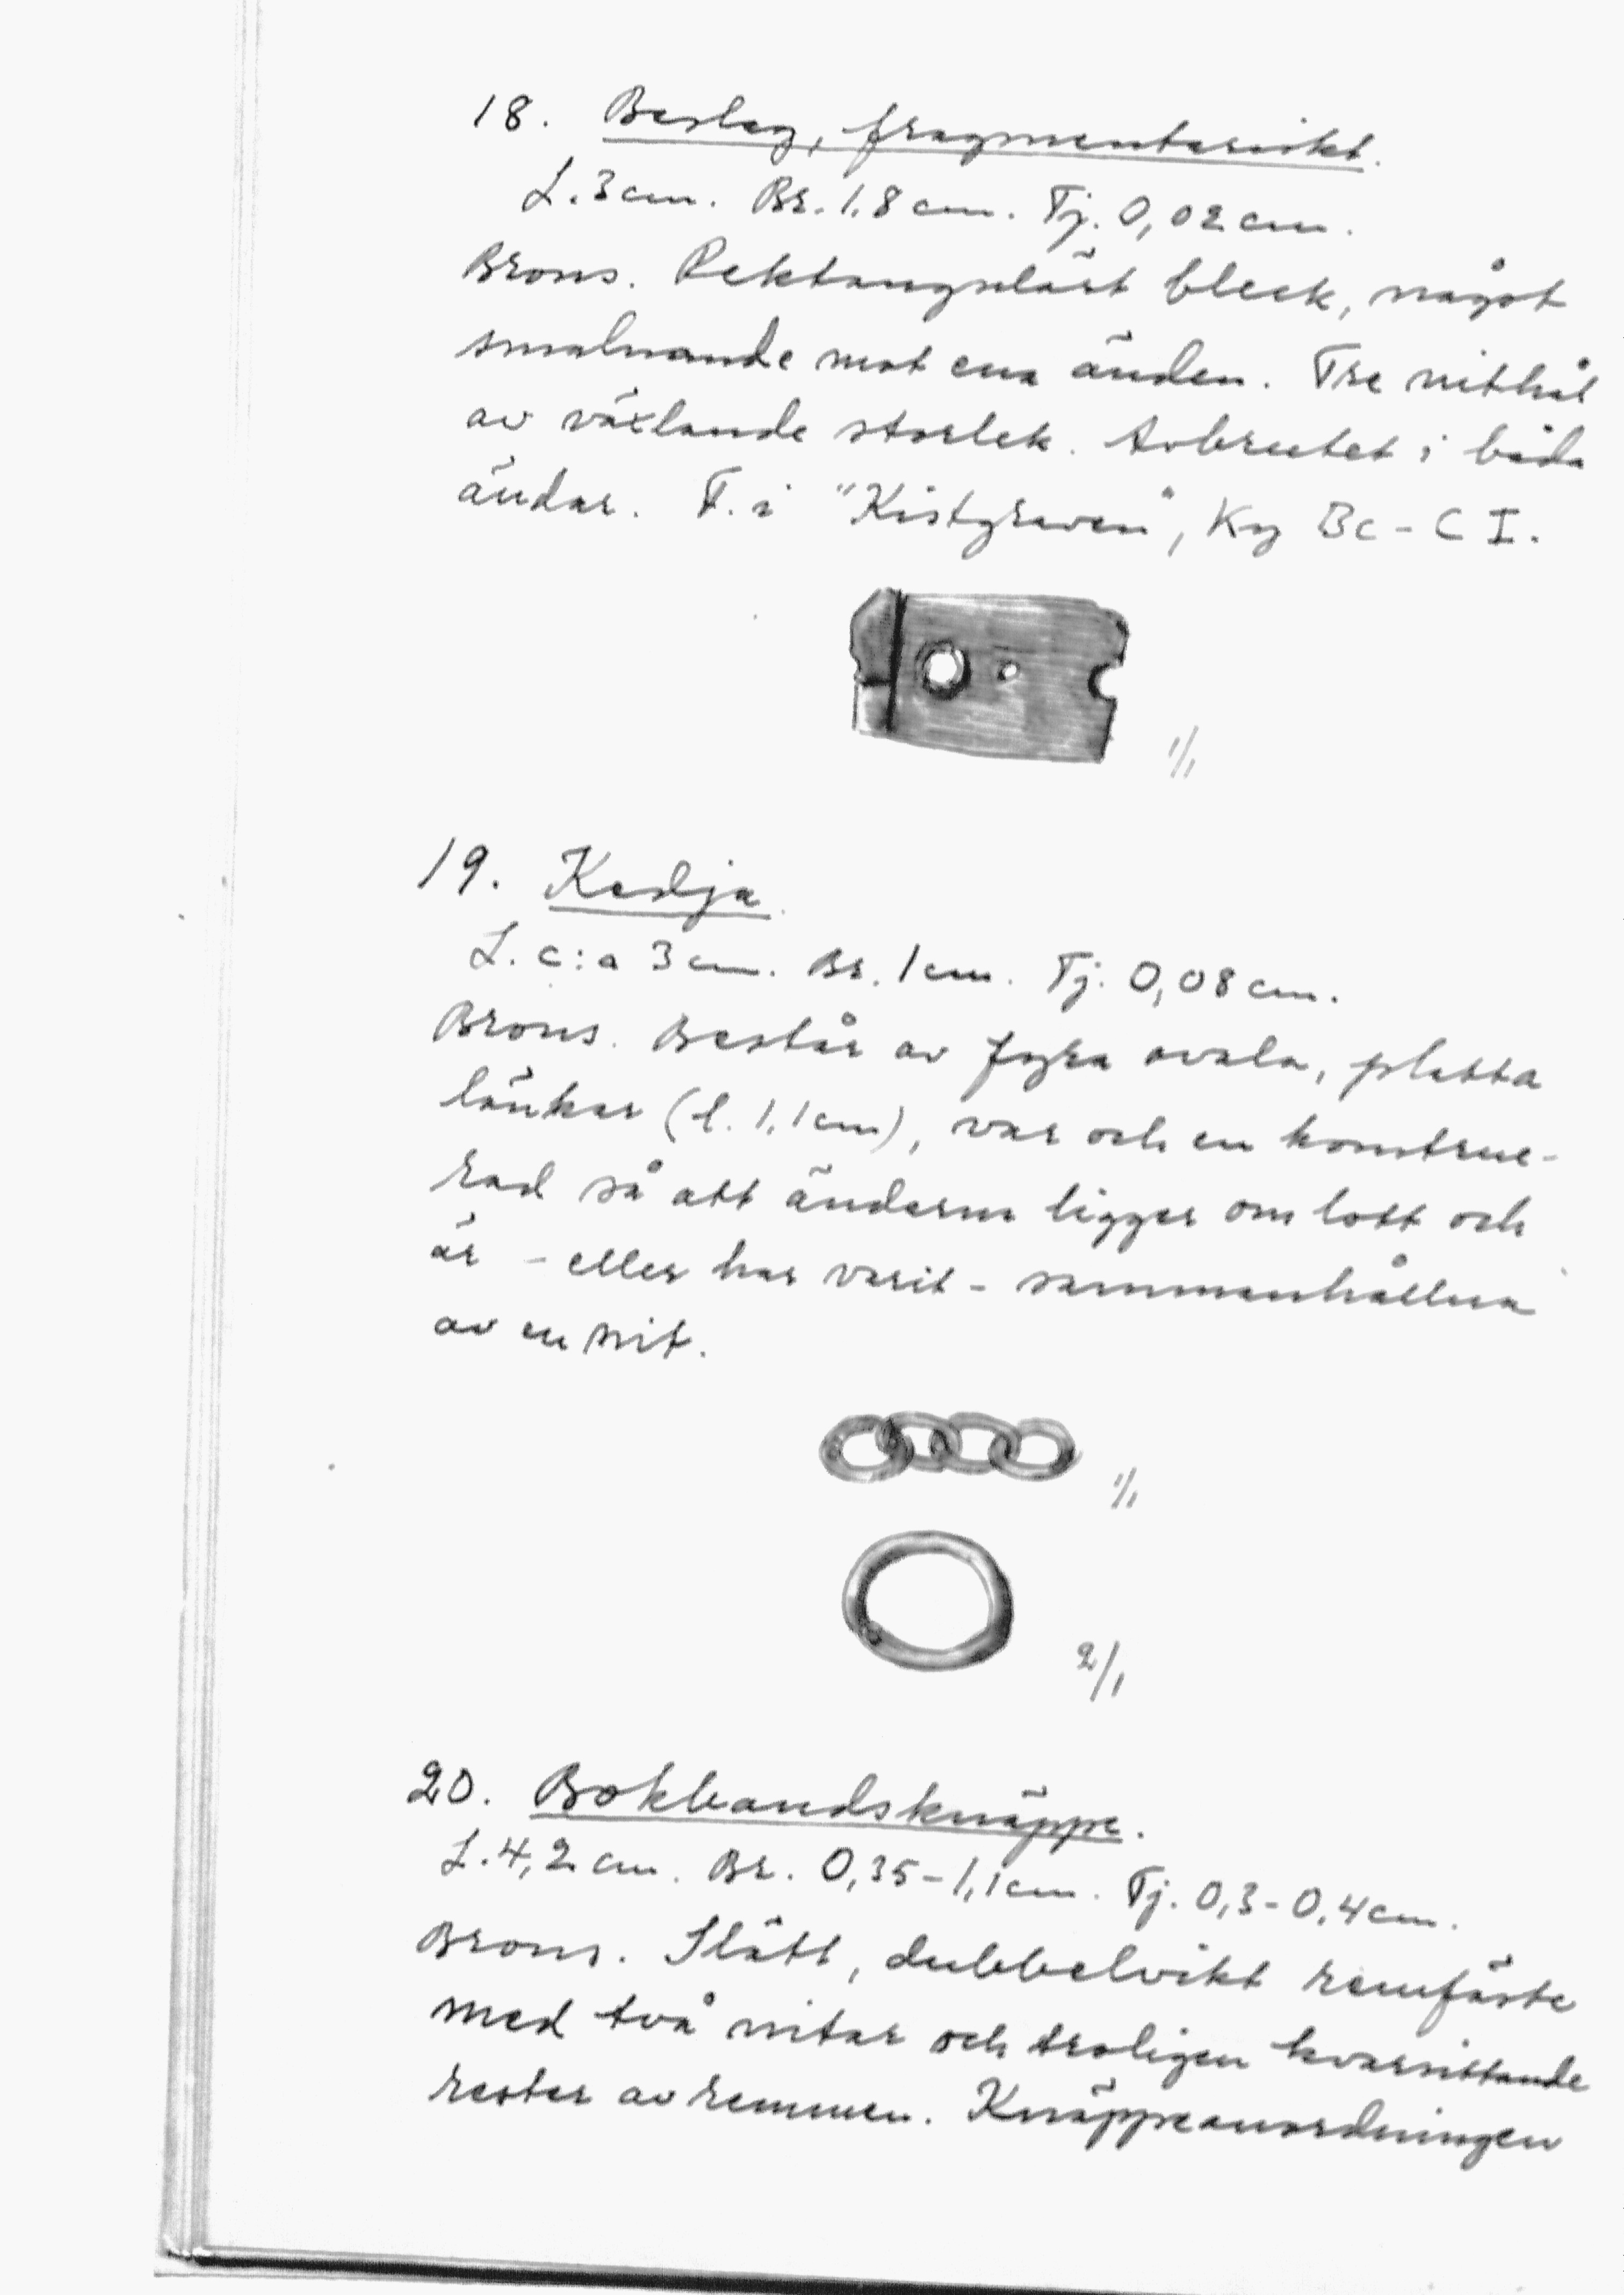 18. Beslag, fragmentariskt.
L. 3 cm. Br. 1,8 cm. Tj. 0,02 cm.
Brons. Rektangulärt bleck, något
smalnande mot ena änden. Tre nithål
av växlande storlek. Avbrutet i båda
ändar. F. i "Kistgraven", Kg Bc - C I.
1/1
19. Kedja.
L. c:a 3 cm. Br. 1 cm. Tj. 0,08 cm.
Brons. Består av fyra ovala, platta
länkar (l. 1,1 cm), var och en konstrue-
rad så att ändarna ligger om lott och
är - eller har varit - sammanhållna
av en nit.
1/1
2/1
20. Bokbandsknäppe.
L. 4,2 cm. Br. 0,35 - 1,1 cm. Tj. 0,3 - 0,4 cm.
Brons. Slätt, dubbelvikt remfäste
med två nitar och troligen kvarsittande
rester av remmen. Knäppeanordningen